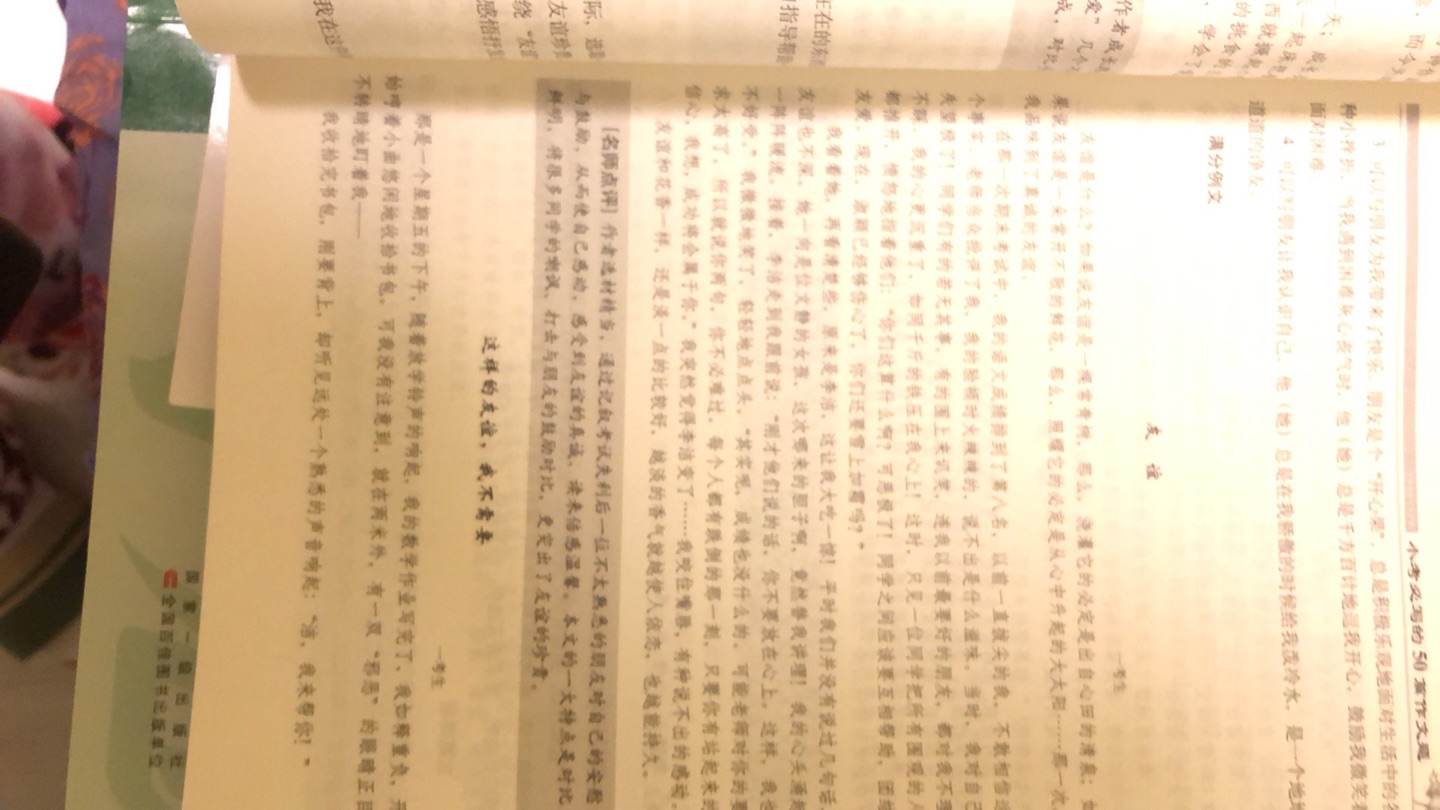 小考必写的 50 篇作文题
3. 可以写朋友为我带来了快乐。朋友是个“开心果”，总是和唯乐观地面对生活中的各
种小挫折。当我遇到困难灰心丧气时，他（她）总是千方百计地逗我开心，鼓励我微笑
面对困难
4. 可以写朋友让我认识自己。他（她）总是在我骄傲的时候给我泼冷水，是一个地
道道的诤友。
满分例文
友 谊
一考生
友谊是什么？如果说友谊是一棵常青树，那么，浇灌它的必定是出自心田的清泉；如
果说友谊是一朵常开不败的鲜花，那么，照耀它的必定是从心中升起的太阳……那一次
我品味到了真诚的友谊。
在那一次期末考试中，我的语文成绩掉到了第八名，以前一直拔尖的我，不敢相信这
个事实，老师当众批评了我，我的脸顿时火辣辣的，说不出是什么滋味，当时，我对自己
失望极了！同学们有的若无其事，有的围上来讥笑，连我以前最要好的朋友，都对我不理
不睬，我的心更沉重了，如同千斤的铁压在我心上！这时，只见一位同学把所有围观的人
都推开，愤怒地指着他们：“你们这算什么啊？可恶极了！同学之间应该要互相帮助，团结
友爱，现在，凌颖已经够伤心了，你们还要雪上加霜吗？”
我看看她，再看清楚些，原来是李洁，这让我大吃一惊！平时我们并没有说过几句话
友谊也不深，她一向是位文静的女孩，这次哪来的胆子啊，竟然替我讲理！我的心头涌起
一阵阵暖流，接着，李洁走到我跟前说：“刚才他们说的话，你不要放在心上。这样，我也
不好受。”我微微地笑了，轻轻地点点头。“其实呢，成绩也没什么的，可能老师对你的要
求太高了，所以就说你两句，你不必难过，每个人都有跌倒的那一刻，只要你有站起来的
信心，我想，成功将会属于你。”我突然觉得李洁变了……我咬住嘴唇，有种说不出的感动。
友谊和花香一样，还是淡一点的比较好，越淡的香气就越使人依恋，也越能持久。
[名师点评] 作者选材精当，通过记叙考试失利后一位不太熟悉的朋友对自己的安慰
与鼓励，从而使自己感动，感受到友谊的真诚，读来倍感温馨。本文的一大特点是对比
鲜明，将很多同学的嘲讽、打击与朋友的鼓励对比，更突出了友谊的珍贵。
这样的友谊，我不需要
一考生
那是一个星期五的下午，随着放学铃声的响起，我的数学作业写完了，我如释重负，开
始哼着小曲悠闲地收拾书包，可我没有注意到，就在两米外，有一双“邪恶”的眼睛正目
不转睛地盯着我——
我收拾完书包，刚要背上，却听见远处一个熟悉的声音响起：“洁，我来帮你！”
国家一级出版社
全国百佳图书出版单位